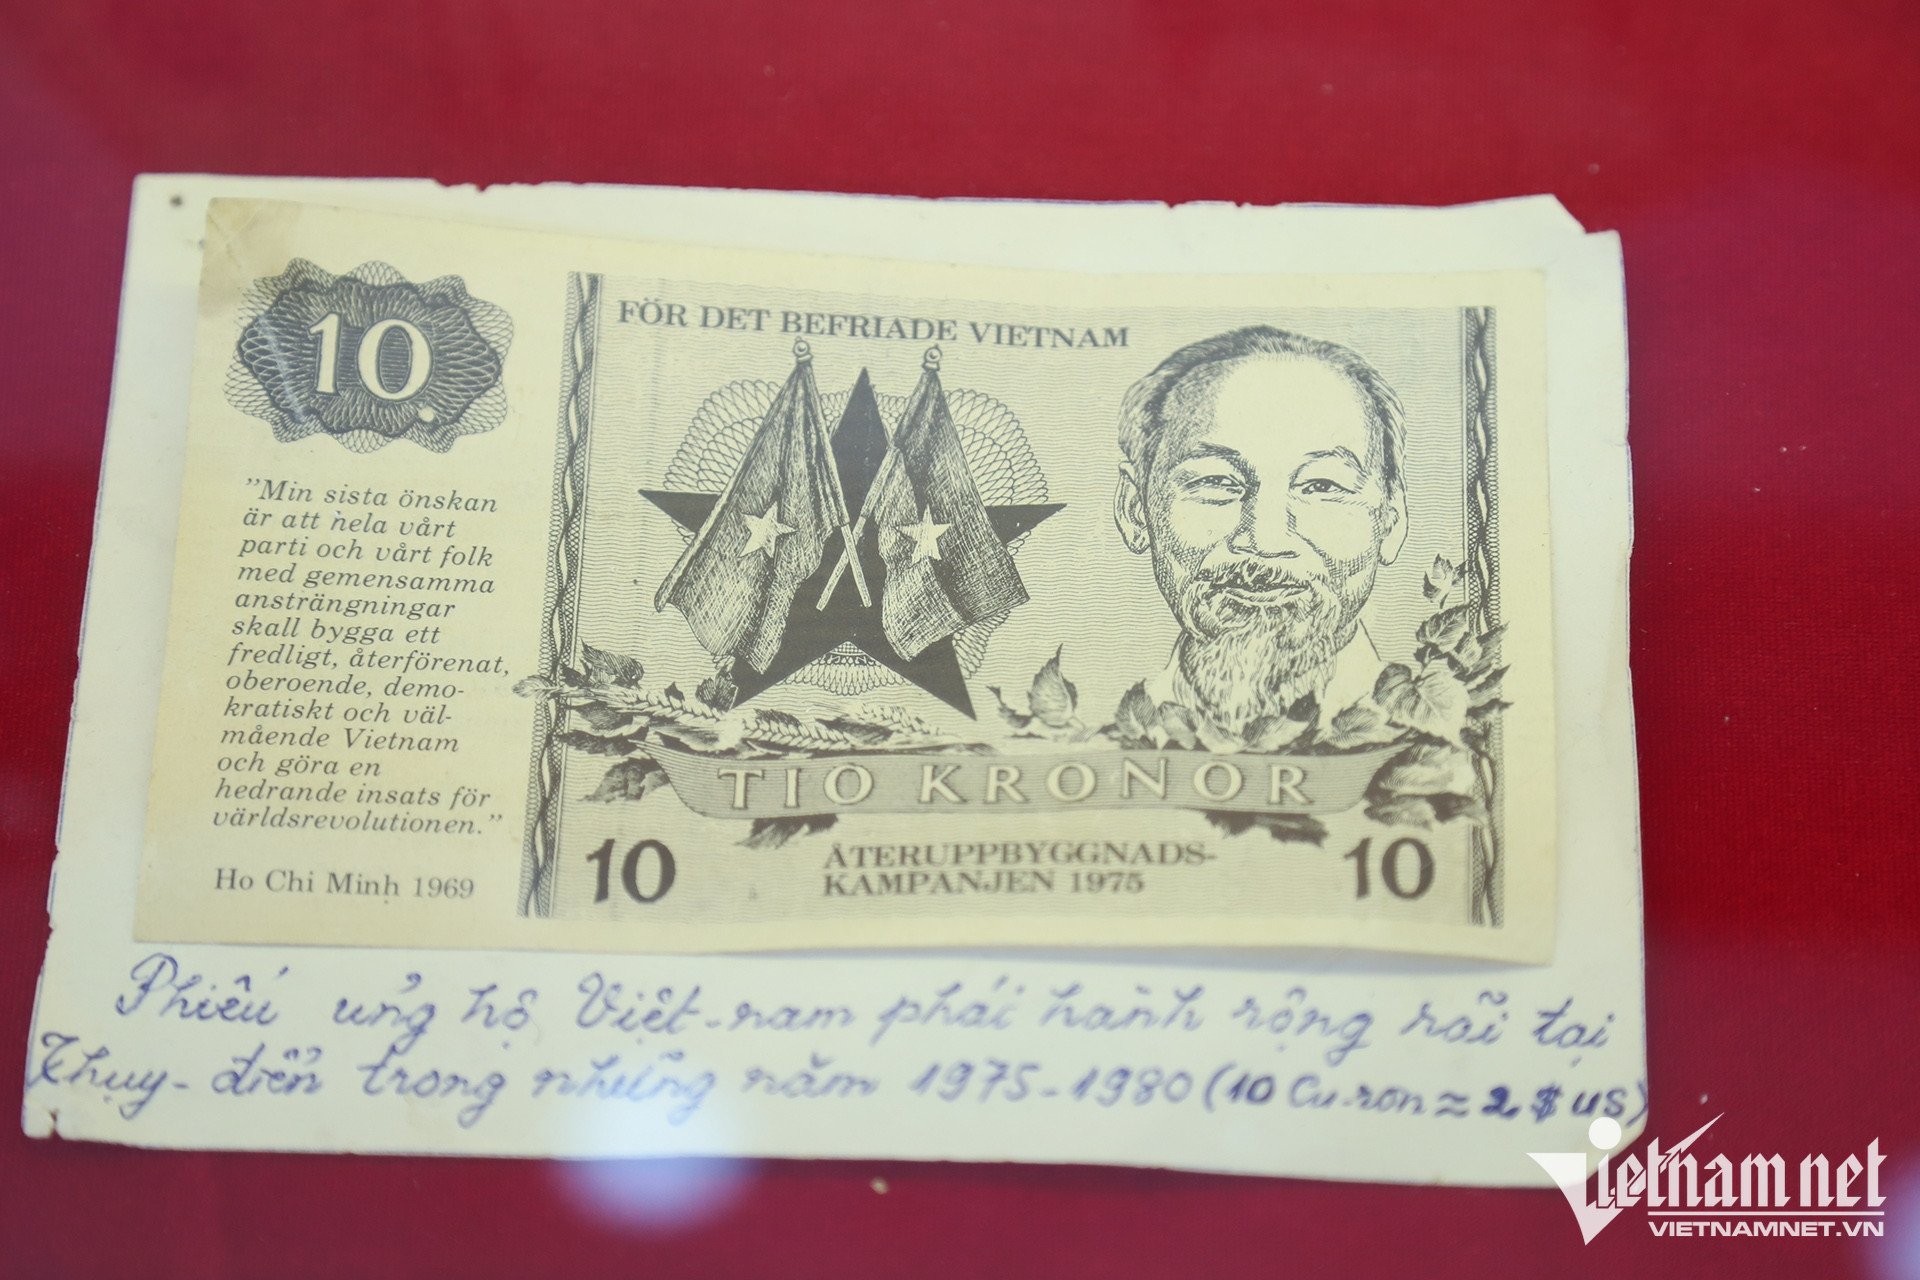 10
"Min sista önskan
är att hela vårt
parti och vårt folk
med gemensamma
ansträngningar
skall bygga ett
fredligt, återförenat,
oberoende, demo-
kratiskt och väl-
mående Vietnam
och göra en
hedrande insats för
världsrevolutionen."
Ho Chi Minh 1969
FÖR DET BEFRIADE VIETNAM
TIO KRONOR
10
ÅTERUPPBYGGNADS-
KAMPANJEN 1975
10
Phiếu ủng hộ Việt-nam phát hành rộng rãi tại
Thụy-điển trong những năm 1975-1980 (10 Cu-ron ≈ 2 $ US)
Vietnamnet
VIETNAMNET.VN